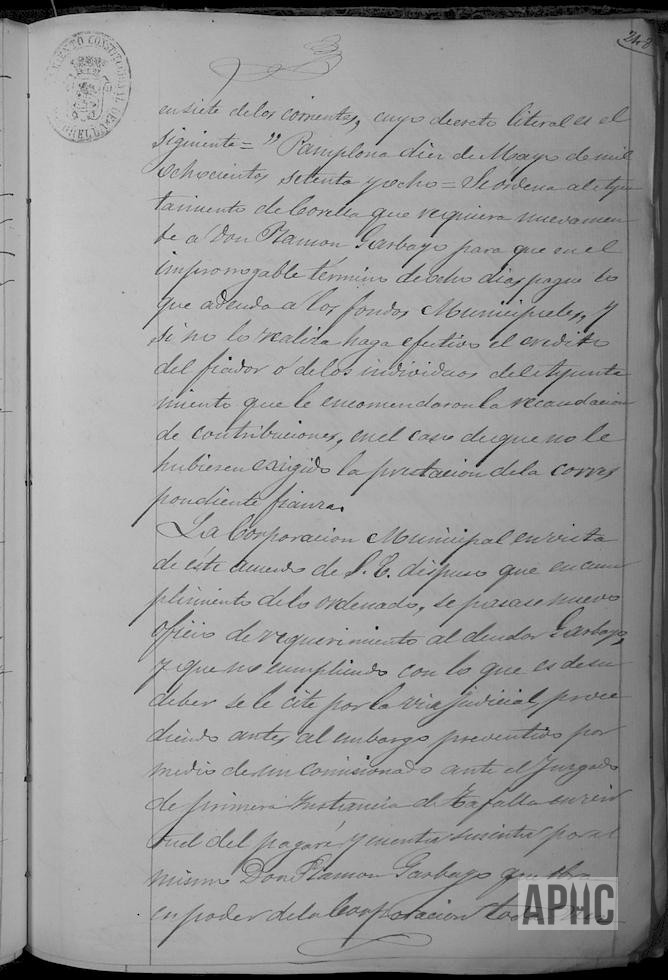 248
en siete de los corrientes, cuyo decreto literal es el
siguiente = " Pamplona diez de Mayo de mil
ochocientos setenta y ocho = Se ordena al Ayun
tamiento de Corella que requiera nuevamen
te a Don Ramon Garbayo para que en el
improrrogable término de ocho dias pague lo
que adeuda a los fondos Municipales, y
si no lo realiza haga efectivo el credito
del fiador ó de los individuos del Ayunta
miento que le encomendaron la recaudacion
de contribuciones, en el caso de que no le
hubiesen exigido la prestacion de la corres
pondiente fianza.
La Corporacion Municipal en vista
de este acuerdo de S. E. dispuso que en cum
plimiento de lo ordenado, se pasase nuevo
oficio de requerimiento al deudor Garbayo,
y que no cumpliendo con lo que es de su
deber se le cite por la via judicial, proce
diendo antes, al embargo preventivo por
medio de un comisionado ante el Juzgado
de primera instancia de Tafalla en vir
tud del pagaré y cuenta suscrita por el
mismo Don Ramon Garbayo que obra
en poder de la Corporacion
APHC